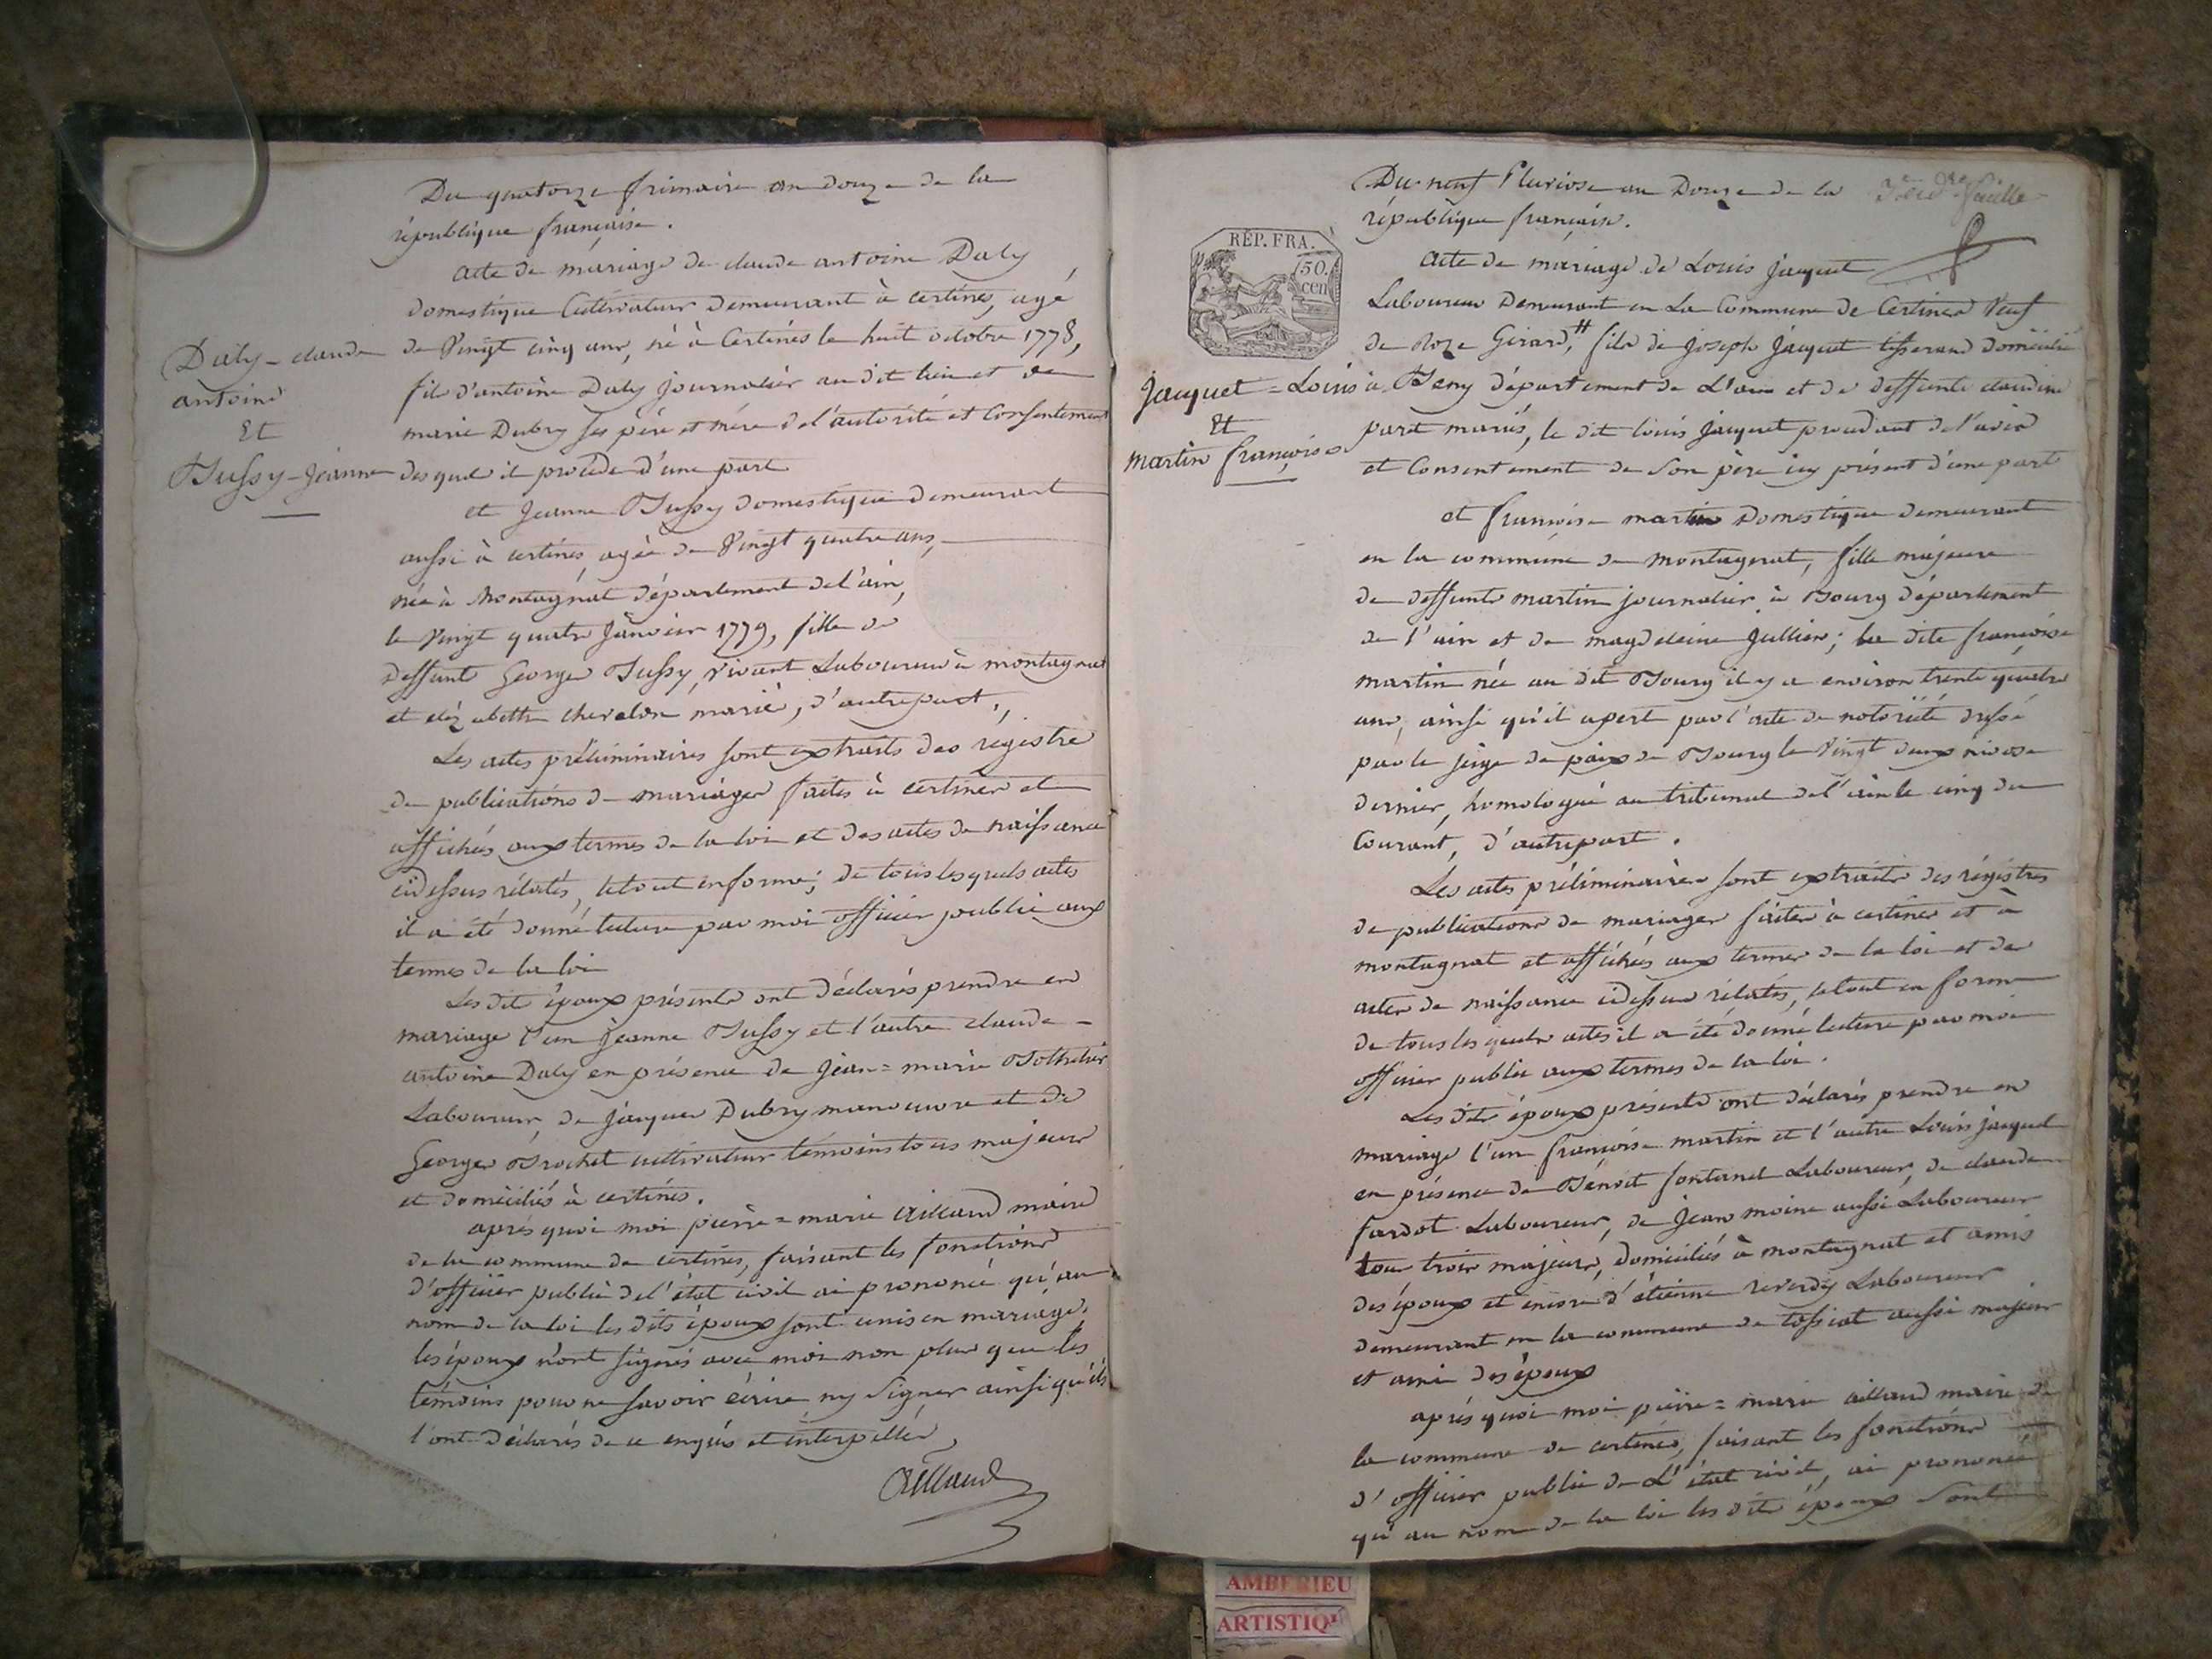 Du quatorze frimaire an douze de la
république française.
acte de mariage de claude antoine Daly
domestique Cultivateur demeurant à certines, agé
de Vingt cinq ans, né à Certines le huit octobre 1778,
fils d'antoine Daly journalier au dit lieu et de
marie Dubry ses père et mère de l'autorité et Consentement
desquels il procède d'une part
et Jeanne Bussy domestique demeurant
aussi à certines, agée de Vingt quatre ans,
née à Montagnat département de l'ain,
le Vingt quatre Janvier 1779, fille de
deffunt George Bussy, vivant Laboureur à montagnat
et elizabeth chevalon mariés, d'autre part,
Les actes préliminaires sont extraits des registre
de publications de mariages faites à certines et
affichés aux termes de la loi et des actes de naissance
cidessus rélatés, le tout en forme; de tous lesquels actes
il a été donné lecture par moi officier public aux
termes de la loi
Les dits époux présents ont déclarés prendre en
mariage l'un Jeanne Bussy et l'autre claude
antoine Daly en présence de Jean = marie Bothelier
Laboureur, de Jacques Dubry manoeuvre et de
George Brochet cultivateur témoins tous majeurs
et domiciliés à certines.
après quoi moi pierre = marie aillaud maire
de la commune de certines, faisant les fonctions
d'officier public de l'état civil ai prononcé qu'au
nom de la loi les dits époux sont unis en mariage,
les époux n'ont signés avec moi non plus que les
témoins pour ne savoir écrire ny signer ainsi qu'ils
l'ont déclarés de ce enquis et interpellés
aillaud
Daly - claude
antoine
Et
Bussy - Jeanne
Du neuf Pluviose an Douze de la
république française.
feuille
RÉP. FRA.
50.
cen
acte de mariage de Louis Jacquet
Laboureur Demeurant en La Commune de Certines Veuf
de Roze Girard, fils de Joseph Jacquet tisserand domicilié
à Beny département de L'ain et de deffunte claudine
parat mariés, le dit louis Jacquet procédant de l'avis
et Consentement de son père icy présent d'une part
Jacquet = Louis
Et
martin françoise
et françoise martin Domestique demeurant
en la commune de montagnat, fille majeure
de deffunt martin journalier à Bourg département
de l'ain et de magdeleine Jullien; la dite françoise
martin née au dit Bourg il y a environ trente quatre
ans, ainsi qu'il apert par l'acte de notoriété dressé
par le juge de paix de Bourg le Vingt deux nivose
dernier, homologué au tribunal de l'ain le cinq du
Courant, d'autre part.
Les actes préliminaires sont extraits des régistres
de publications de mariages faites à certines et à
montagnat et affichés aux termes de la loi et des
actes de naissance cidessus rélatés, le tout en forme
de tous les quels actes il a été donné lecture par moi
officier public aux termes de la loi.
Les dits époux présents ont déclarés prendre en
mariage l'un françoise martin et l'autre Louis jacquet
en présence de Bénoit fontanel Laboureur, de claude
fardot Laboureur, de Jean moine aussi Laboureur
tous trois majeurs, domiciliés à montagnat et amis
des époux et encore d'étienne reverdy Laboureur
demeurant en la commune de tossiat aussi majeur
et ami des époux
après quoi moi pierre = marie aillaud maire de
la commune de certines, faisant les fonctions
d'officier public de L'état civil, ai prononcé
qu'au nom de la loi les dits époux sont
AMBERIEU
ARTISTIQU